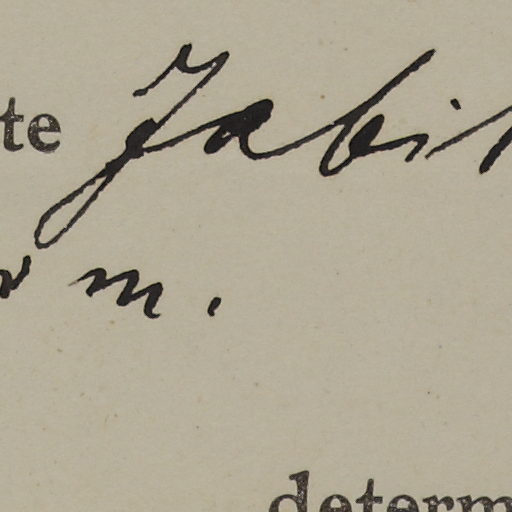 te Jabi
m.
determ